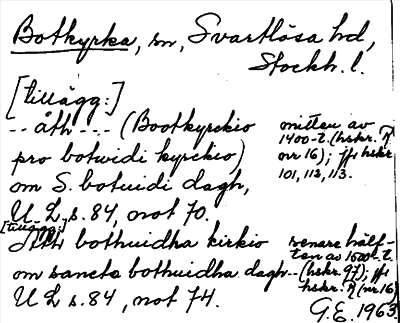 Botkyrka, sn, Svartlösa hd,
Stockh. l.
[tillägg:]
-- åth --- (Bootkyrckio
pro botwidi kyrckio)
om S. botuidi dagh,
U L s. 84, not 70.
mitten av
1400-t. (hskr. A
nr 16); jfr hskr
101, 112, 113.
[tillägg:]
Ath bothuidha kirkio
om sancta bothuidha dagh--
U L s. 84, not 74.
senare hälf-
ten av 1500-t.
(hskr. 97); jfr
hskr. A (nr 16)
G.E. 1963